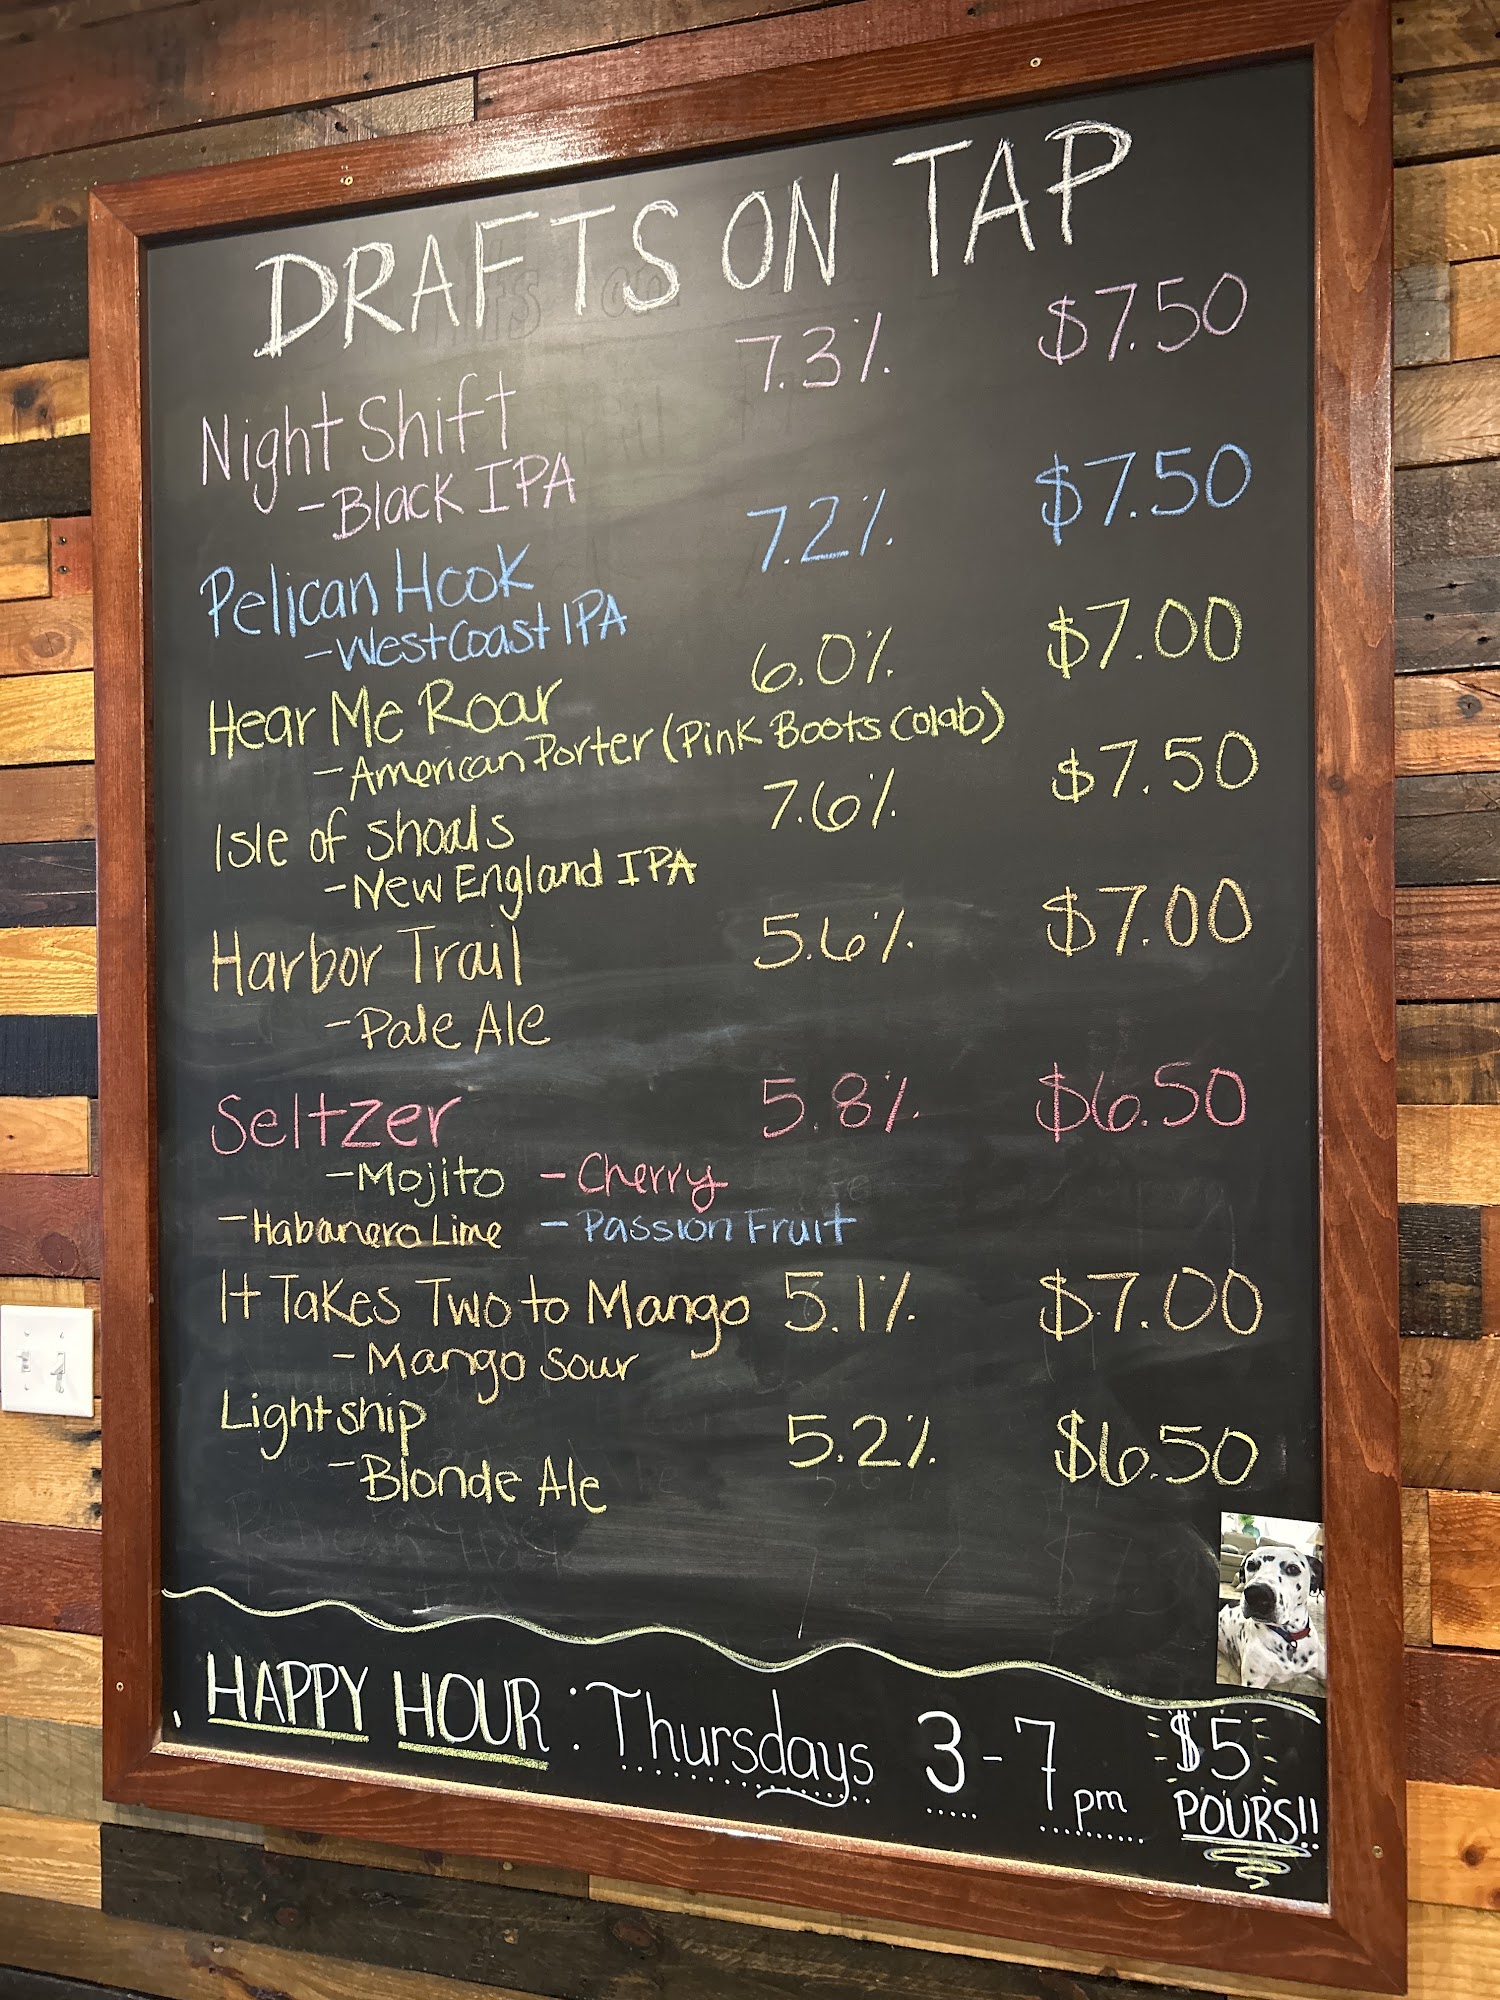 DRAFTS ON TAP
Night Shift 7.3% $7.50
- Black IPA
Pelican Hook 7.2% $7.50
- West Coast IPA
Hear Me Roar 6.0% $7.00
- American Porter (Pink Boots Colab)
Isle of Shoals 7.6% $7.50
- New England IPA
Harbor Trail 5.6% $7.00
- Pale Ale
Seltzer 5.8% $6.50
- Mojito - Cherry
- Habanero Lime - Passion Fruit
It Takes Two to Mango 5.1% $7.00
- Mango Sour
Lightship 5.2% $6.50
- Blonde Ale
HAPPY HOUR: Thursdays 3-7pm $5
POURS!!